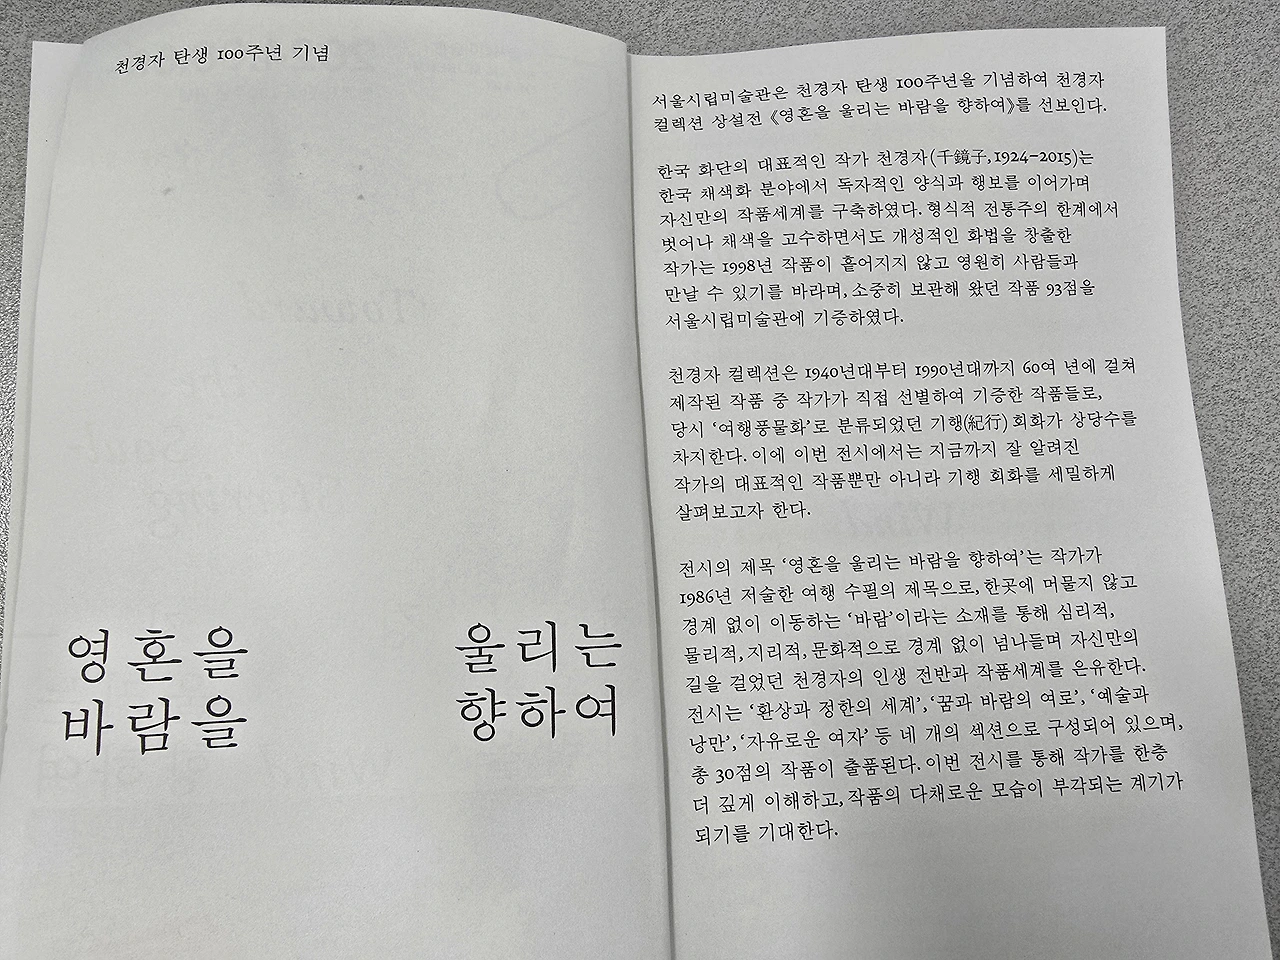 천경자 탄생 100주년 기념
영혼을 울리는
바람을 향하여
서울시립미술관은 천경자 탄생 100주년을 기념하여 천경자
컬렉션 상설전 《영혼을 울리는 바람을 향하여》를 선보인다.
한국 화단의 대표적인 작가 천경자(千鏡子, 1924-2015)는
한국 채색화 분야에서 독자적인 양식과 행보를 이어가며
자신만의 작품세계를 구축하였다. 형식적 전통주의 한계에서
벗어나 채색을 고수하면서도 개성적인 화법을 창출한
작가는 1998년 작품이 흩어지지 않고 영원히 사람들과
만날 수 있기를 바라며, 소중히 보관해 왔던 작품 93점을
서울시립미술관에 기증하였다.
천경자 컬렉션은 1940년대부터 1990년대까지 60여 년에 걸쳐
제작된 작품 중 작가가 직접 선별하여 기증한 작품들로,
당시 ‘여행풍물화’로 분류되었던 기행(紀行) 회화가 상당수를
차지한다. 이에 이번 전시에서는 지금까지 잘 알려진
작가의 대표적인 작품뿐만 아니라 기행 회화를 세밀하게
살펴보고자 한다.
전시의 제목 ‘영혼을 울리는 바람을 향하여’는 작가가
1986년 저술한 여행 수필의 제목으로, 한곳에 머물지 않고
경계 없이 이동하는 ‘바람’이라는 소재를 통해 심리적,
물리적, 지리적, 문화적으로 경계 없이 넘나들며 자신만의
길을 걸었던 천경자의 인생 전반과 작품세계를 은유한다.
전시는 ‘환상과 정한의 세계’, ‘꿈과 바람의 여로’, ‘예술과
낭만’, ‘자유로운 여자’ 등 네 개의 섹션으로 구성되어 있으며,
총 30점의 작품이 출품된다. 이번 전시를 통해 작가를 한층
더 깊게 이해하고, 작품의 다채로운 모습이 부각되는 계기가
되기를 기대한다.